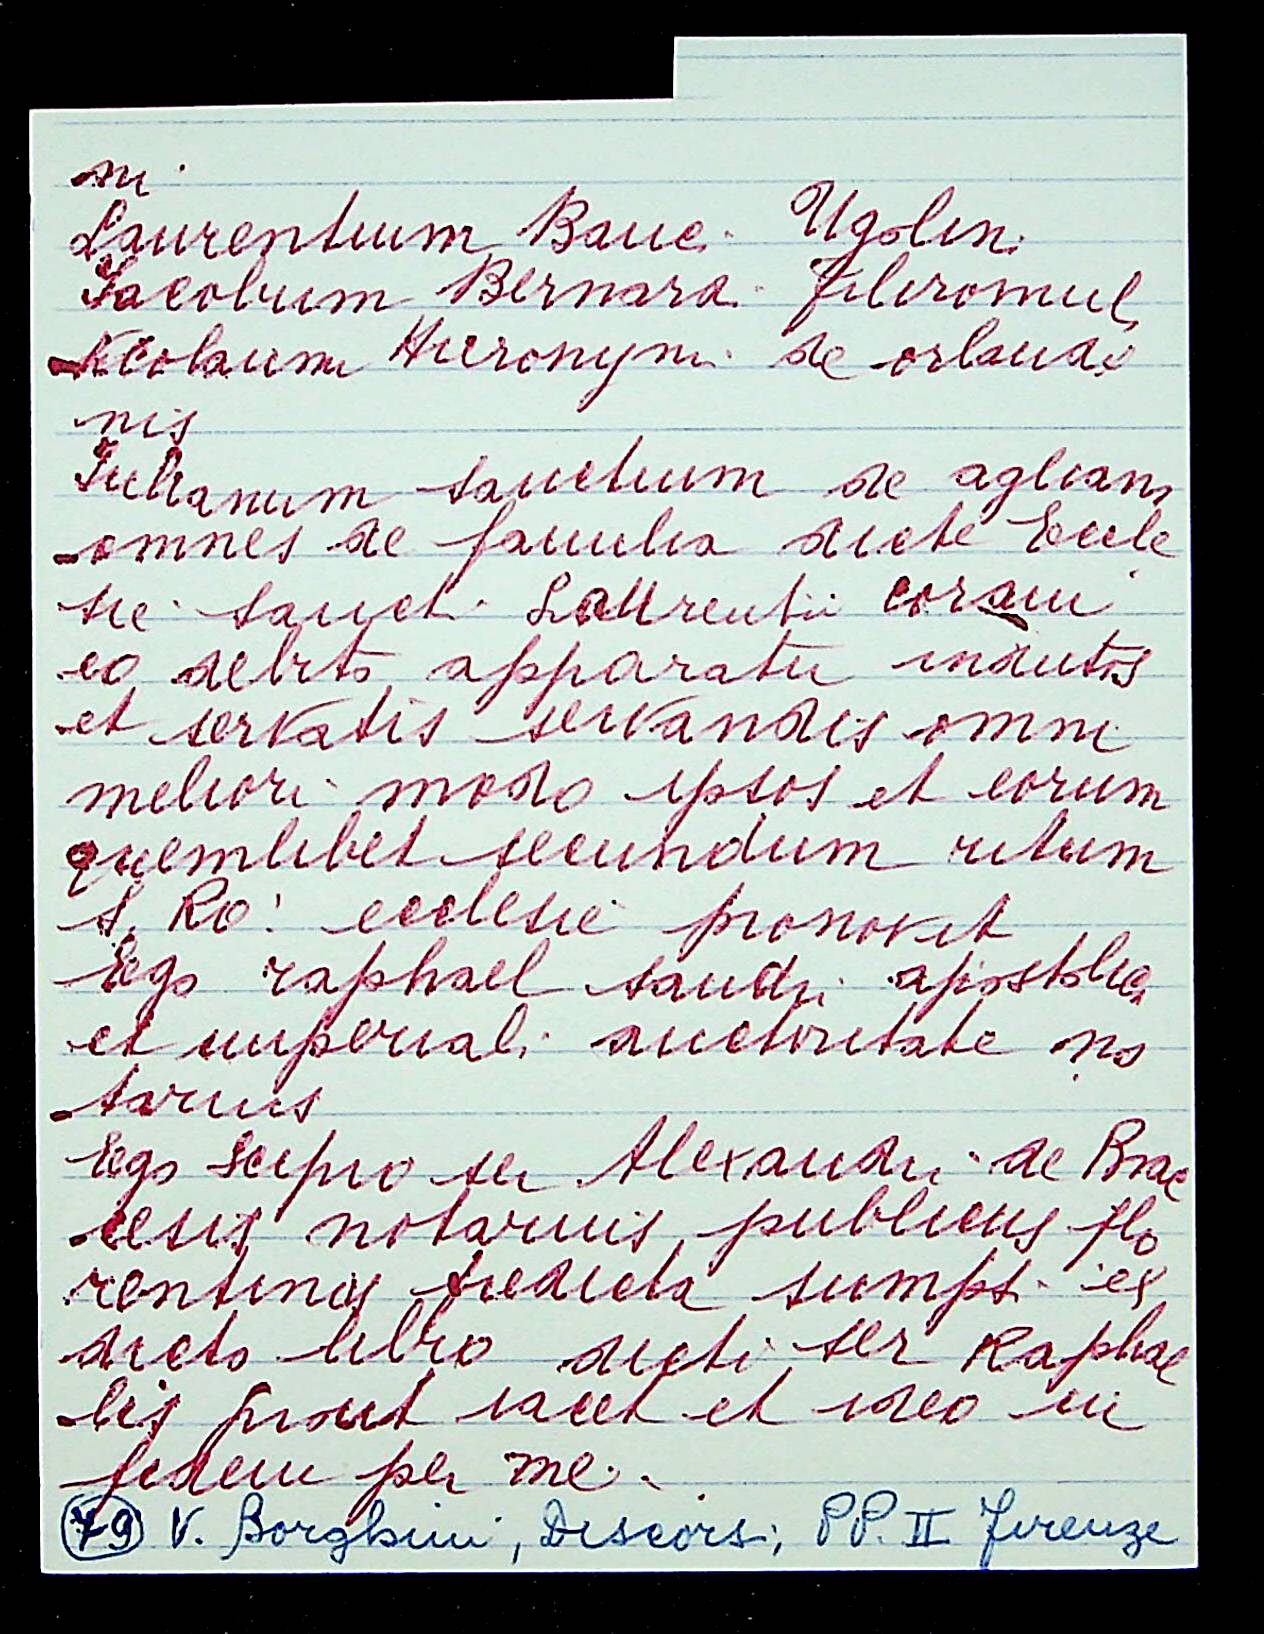 ni
Laurentium Bauc. Ugolin.
Jacobum Bernard. Filiromul
Nicolaum Hieronymi de orlandi
nis
Julianum sanctium de aglian,
omnes de familia dicte Eccle
sie sancti Laurentii coram
eo debito apparatu indutos
et servatis servandis omni
meliori modo ipsos et eorum
quemlibet secundum ritum
S. Ro: ecclesie promovit
Ego raphael sandri apostolica
et imperiali auctoritate no
tarius
Ego Scipio ser Alexandri de Brac
cesis notarius publicus flo
rentinus predicta sumpsi ex
dicto libro dicti ser Raphae
lis prout iacet et ideo in
fidem per me.
79 V. Borghini, Discorsi, PP. II Firenze